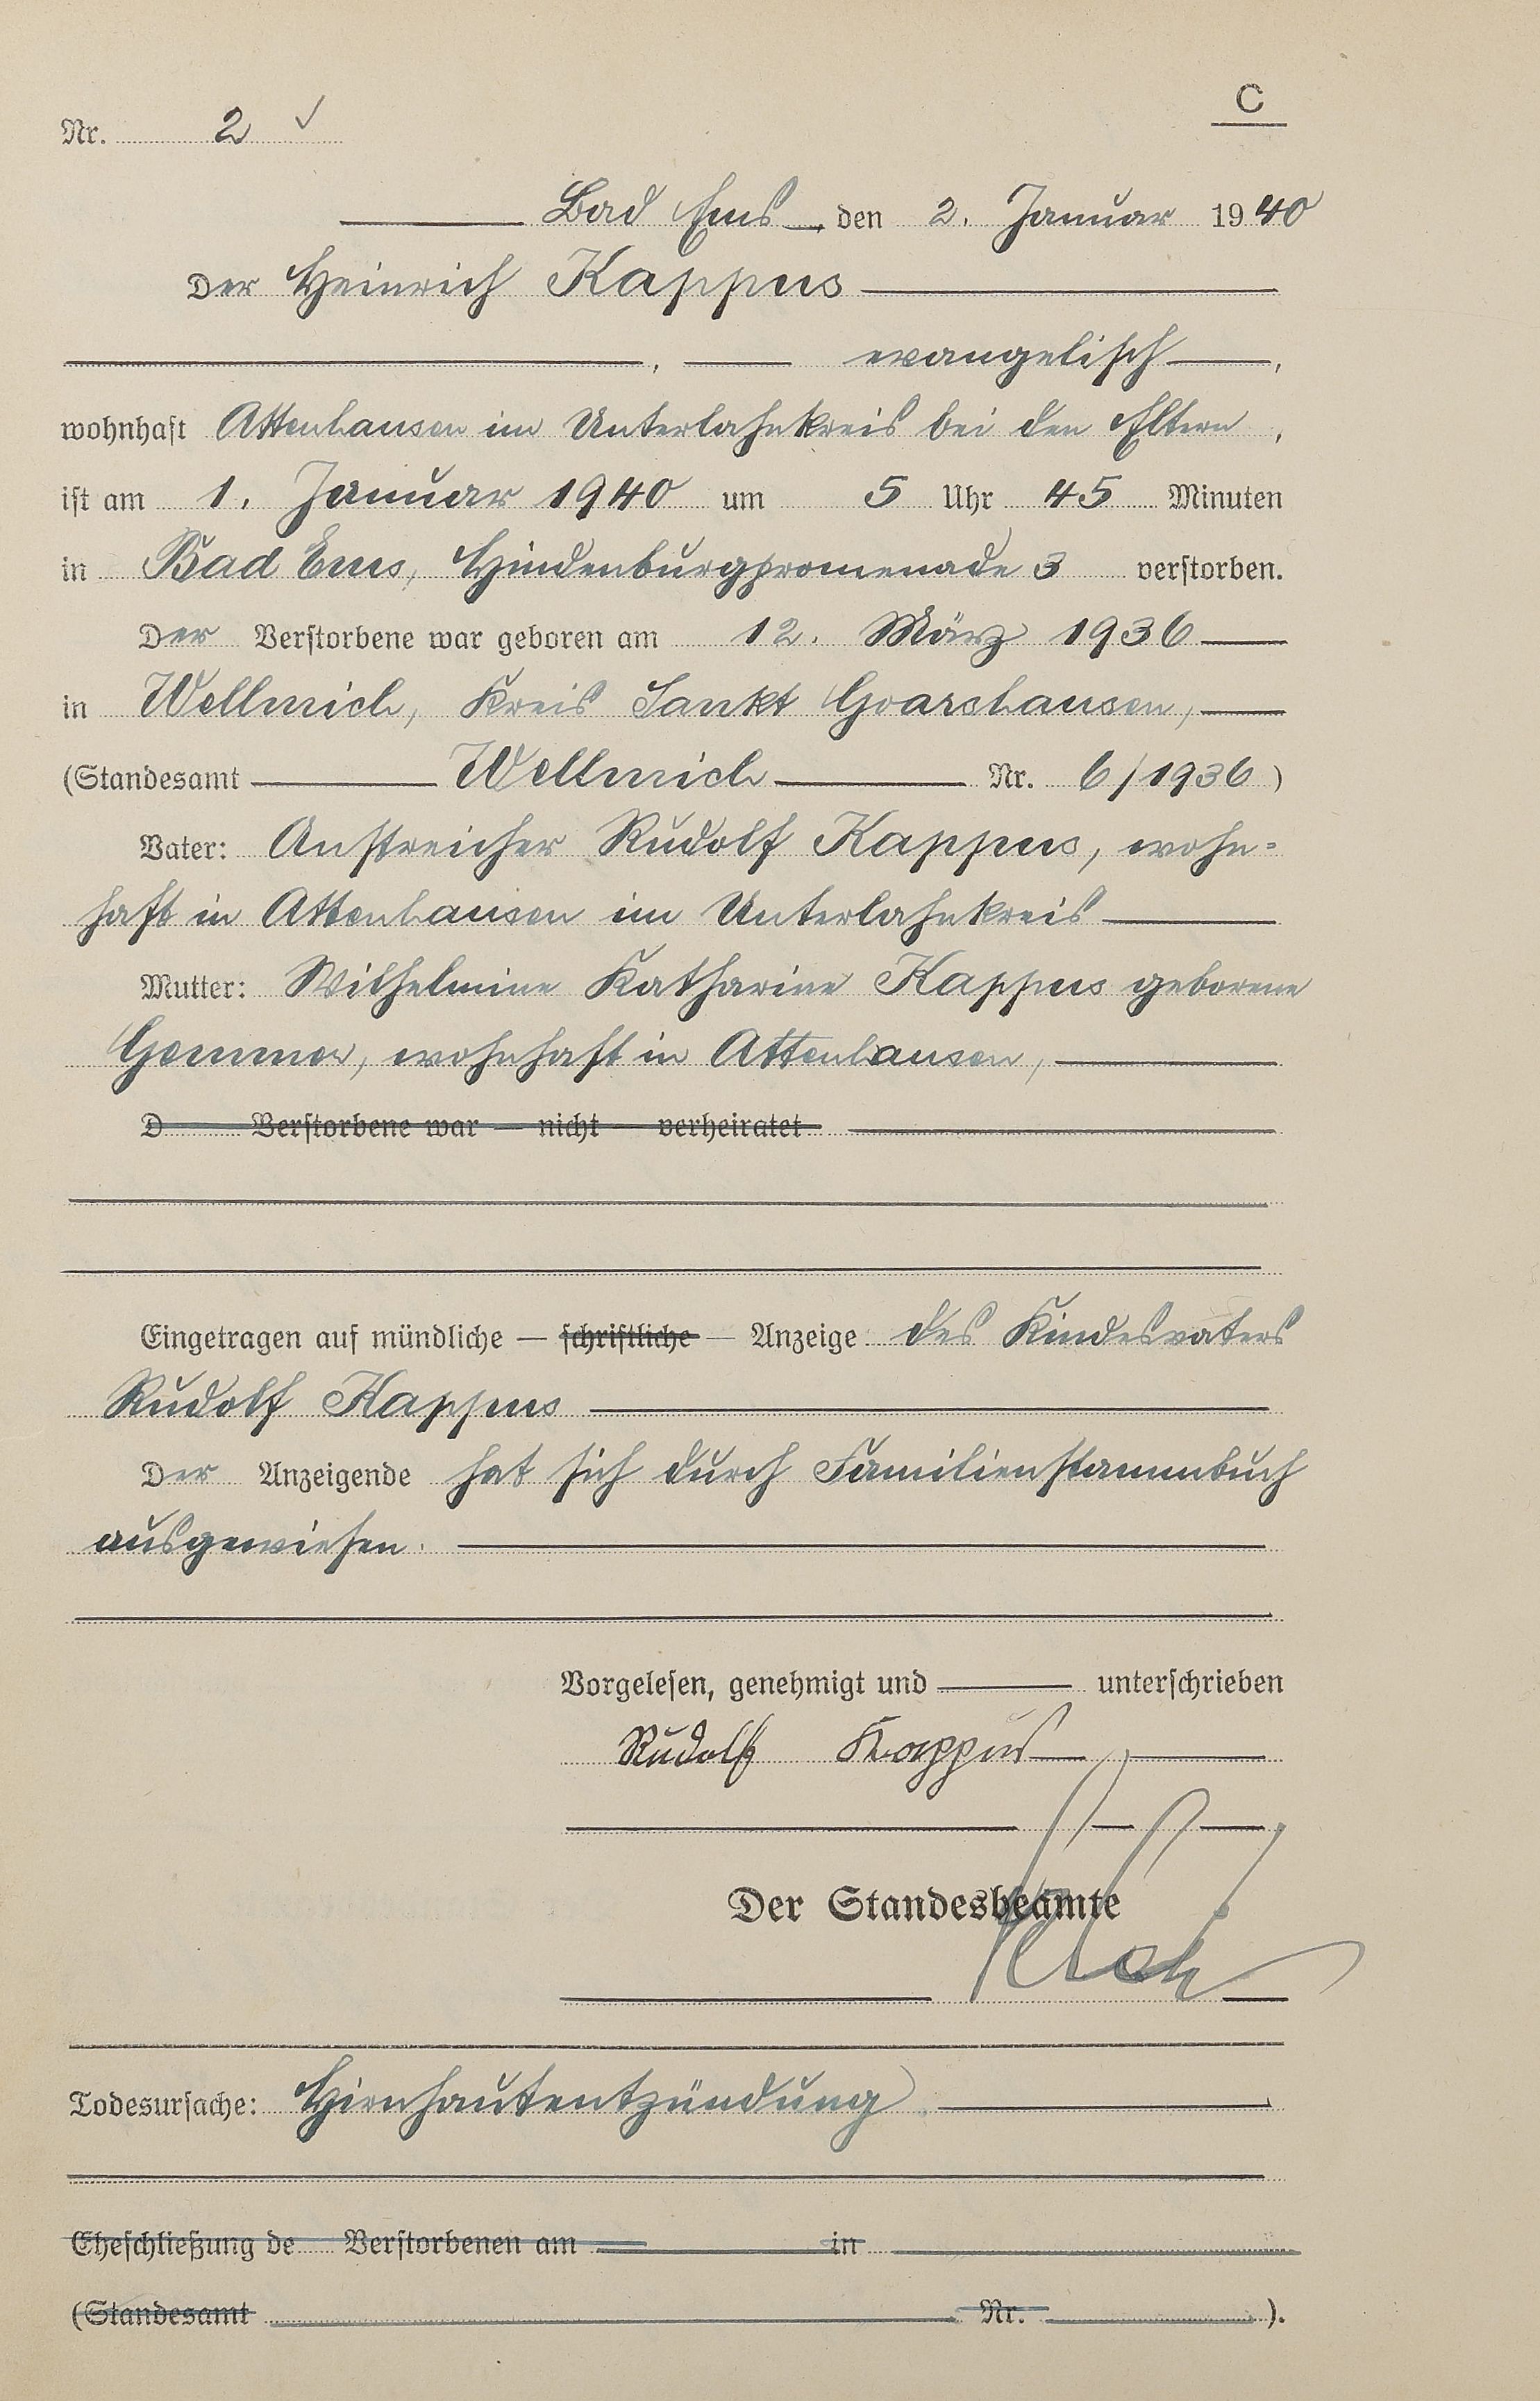 C
Nr. 2 ✓
Bad Ems, den 2. Januar 1940
Der Heinrich Kappus
, evangelisch,
wohnhaft Attenhausen im Unterlahnkreis bei den Eltern,
ist am 1. Januar 1940 um 5 Uhr 45 Minuten
in Bad Ems, Hindenburgpromenade 3 verstorben.
Der Verstorbene war geboren am 12. März 1936
in Wellmich, Kreis Sankt Goarshausen,
(Standesamt Wellmich Nr. 6/1936)
Vater: Anstreicher Rudolf Kappus, wohn=
haft in Attenhausen im Unterlahnkreis
Mutter: Wilhelmine Katharine Kappus geborene
Gemmer, wohnhaft in Attenhausen,
D Verstorbene war — nicht — verheiratet
Eingetragen auf mündliche — schriftliche — Anzeige des Kindesvaters
Rudolf Kappus
Der Anzeigende hat sich durch Familienstammbuch
ausgewiesen.
Vorgelesen, genehmigt und unterschrieben
Rudolf Kappus
Der Standesbeamte
Todesursache: Hirnhautentzündung.
Eheschließung de Verstorbenen am in
(Standesamt Nr. ).